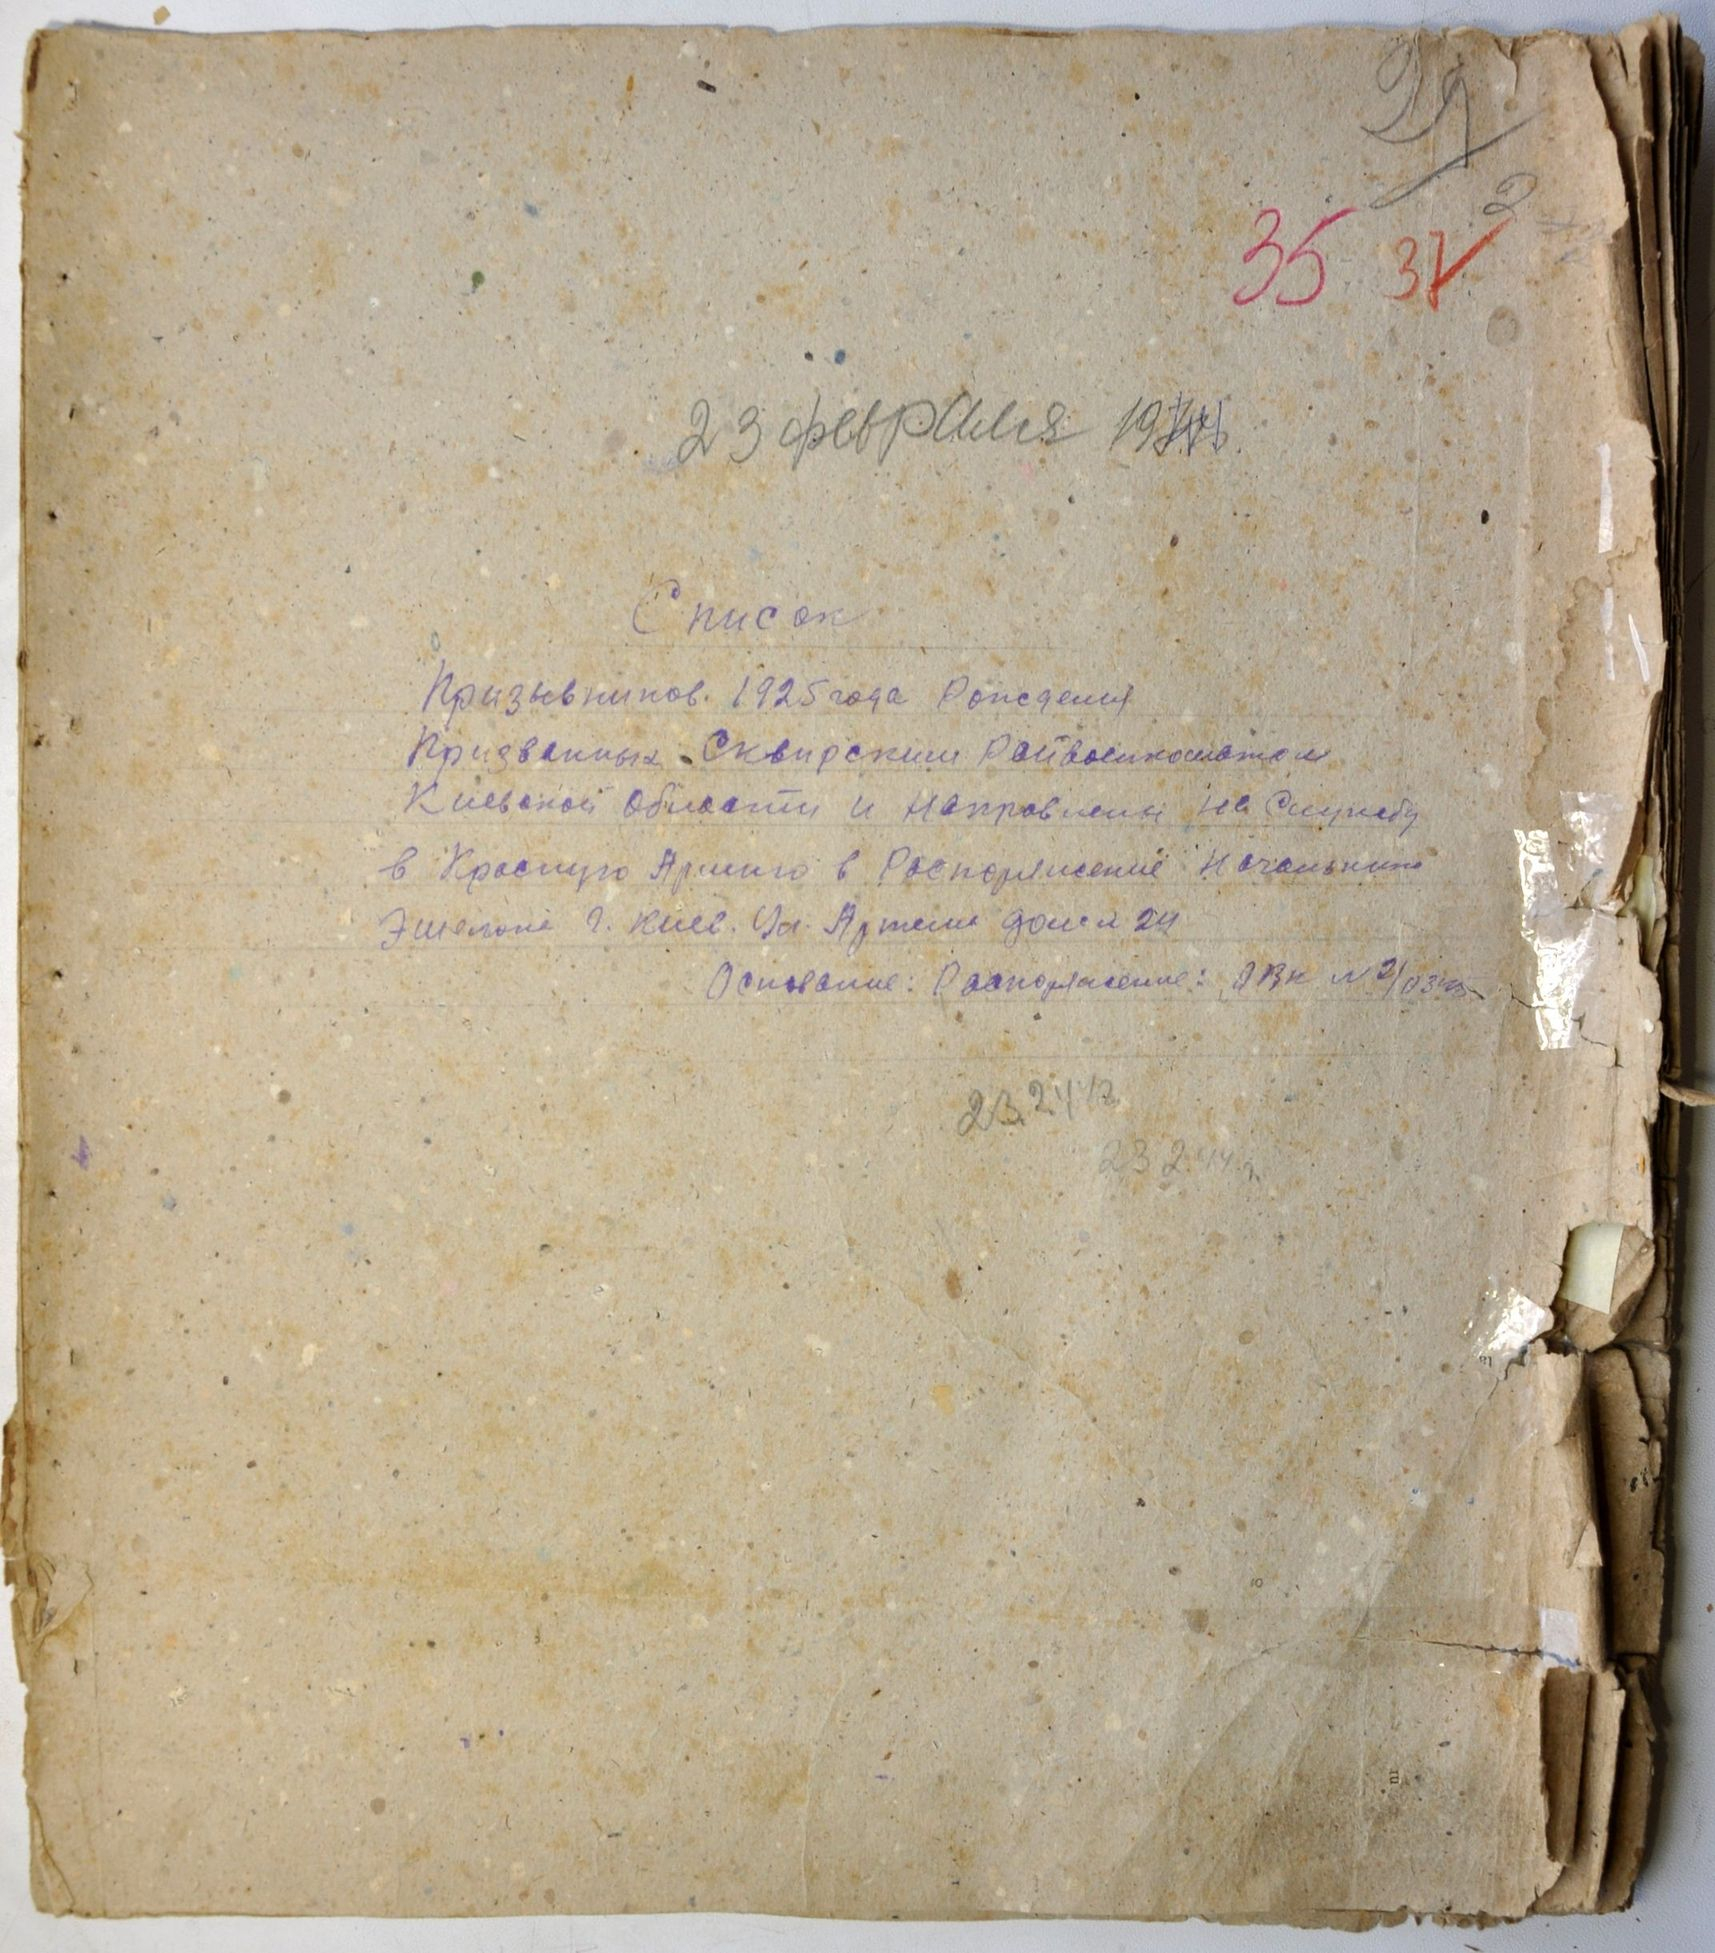 2
35 37
23 февраля 1944
Список
Призывников. 1925 года Рождения
Призванных Сквирским Райвоенкоматом
Киевской области и направлены на Службу
в Красную Армию в Распоряжение Начальника
Эшелона г. Киев. Ул. Артема дом № 24
Основание: Распоряжение: ОВК №
23.2.44 г
23 2.44 г.